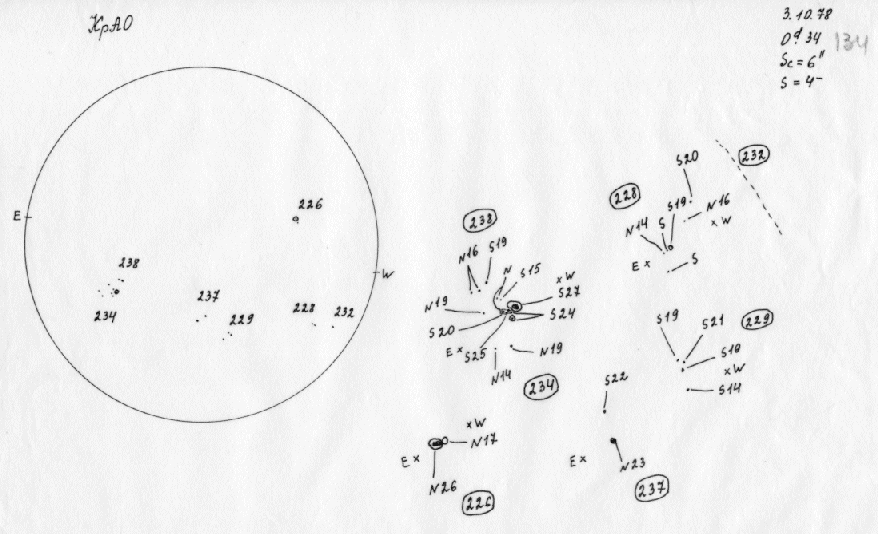 КрАО
3.10.78
0ᵈ.34
134
Sc = 6"
S = 4-
E
W
226
238
234
237
229
228
232
232
S20
228
S19
N16
x W
N14
S
E x
S
238
N16
S19
N
S15
x W
S27
N19
S24
S20
E x
S25
N19
N14
234
S19
S21
229
S18
x W
S14
S22
E x
N23
237
x W
E x
N17
N26
226